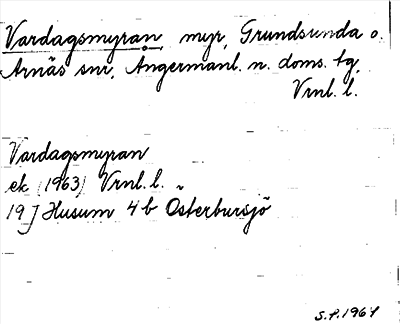 Vardagsmyran, myr, Grundsunda o.
Arnäs snr, Ångermanl. n. doms. tg,
Vrnl. l.
Vardagsmyran
ek (1963) Vrnl. l.
19 J Husum 4 b Österbursjö
S.P. 1964